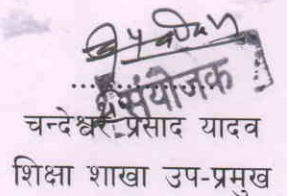 संयोजक
चन्देश्वर प्रसाद यादव
शिक्षा शाखा उप-प्रमुख